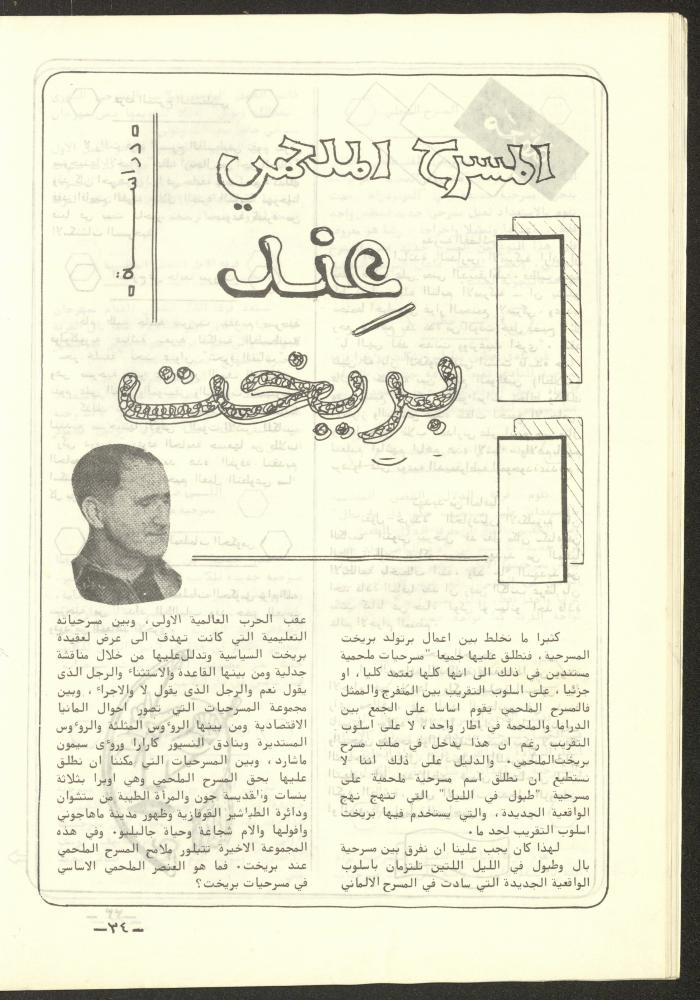 المسرح الملحمي
دراسة
عند
بريخت
كثيرا ما نخلط بين اعمال برتولد بريخت
المسرحية ، فنطلق عليها جميعا "سرحيات ملحمية
مستندين في ذلك الى انها كلها تعتمد كليا ، او
جزئيا ، على اسلوب التقريب بين المتفرج والممثل
فالمسرح الملحمي يقوم اساسا على الجمع بين
الدراما والملحمة في اطار واحد ، لا على اسلوب
التقريب رغم ان هذا يدخل في صلب مسرح
بريخت الملحمي . والدليل على ذلك اننا لا
نستطيع ان نطلق اسم مسرحية ملحمية على
مسرحية "طبول في الليل" التي تنهج نهج
الواقعية الجديدة ، والتي يستخدم فيها بريخت
اسلوب التقريب لحد ما .
لهذا كان يجب علينا ان نفرق بين مسرحية
بال وطبول في الليل اللتين تلتزمان باسلوب
الواقعية الجديدة التي سادت في المسرح الالماني
عقب الحرب العالمية الاولى ، وبين مسرحياته
التعليمية التي كانت تهدف الى عرض لعقيدة
بريخت السياسية وتدلل عليها من خلال مناقشة
جدلية ومن بينها القاعدة والاستثناء والرجل الذى
يقول نعم والرجل الذى يقول لا والاجراء ، وبين
مجموعة المسرحيات التي تصور احوال المانيا
الاقتصادية ومن بينها الروءوس المثلثة والروءوس
المستديرة وبنادق السنيور كارارا وروءى سيمون
ماشارد ، وبين المسرحيات التي يمكننا ان نطلق
عليها بحق المسرح الملحمي وهي اوبرا بثلاثة
بنسات والقديسة جون والمرأة الطيبة من ستشوان
ودائرة الطباشير القوقازية وظهور مدينة ماهاجوني
وافولها والام شجاعة وحياة جاليليو . وفي هذه
المجموعة الاخيرة تتبلور ملامح المسرح الملحمي
عند بريخت . فما هو العنصر الملحمي الاساسي
في مسرحيات بريخت؟
ـ ٣٤ ـ